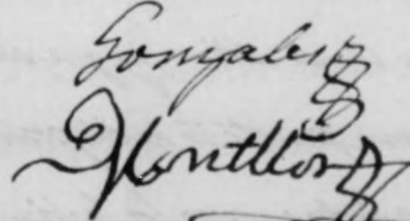 Gonzalez
Montllor